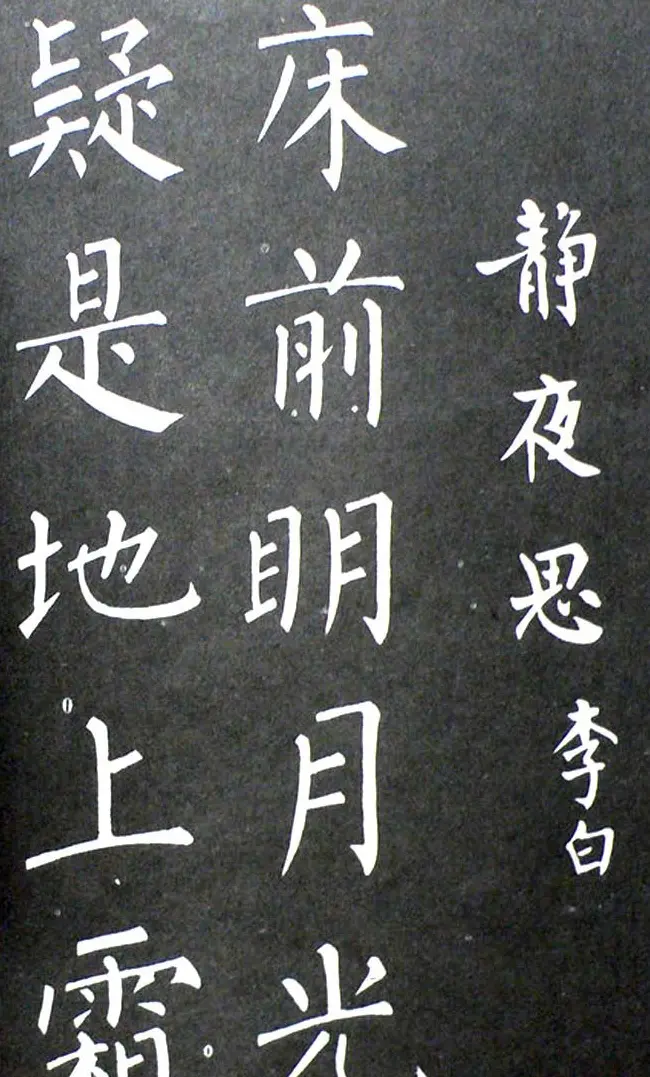 静夜思
李白
床前明月光
疑是地上霜